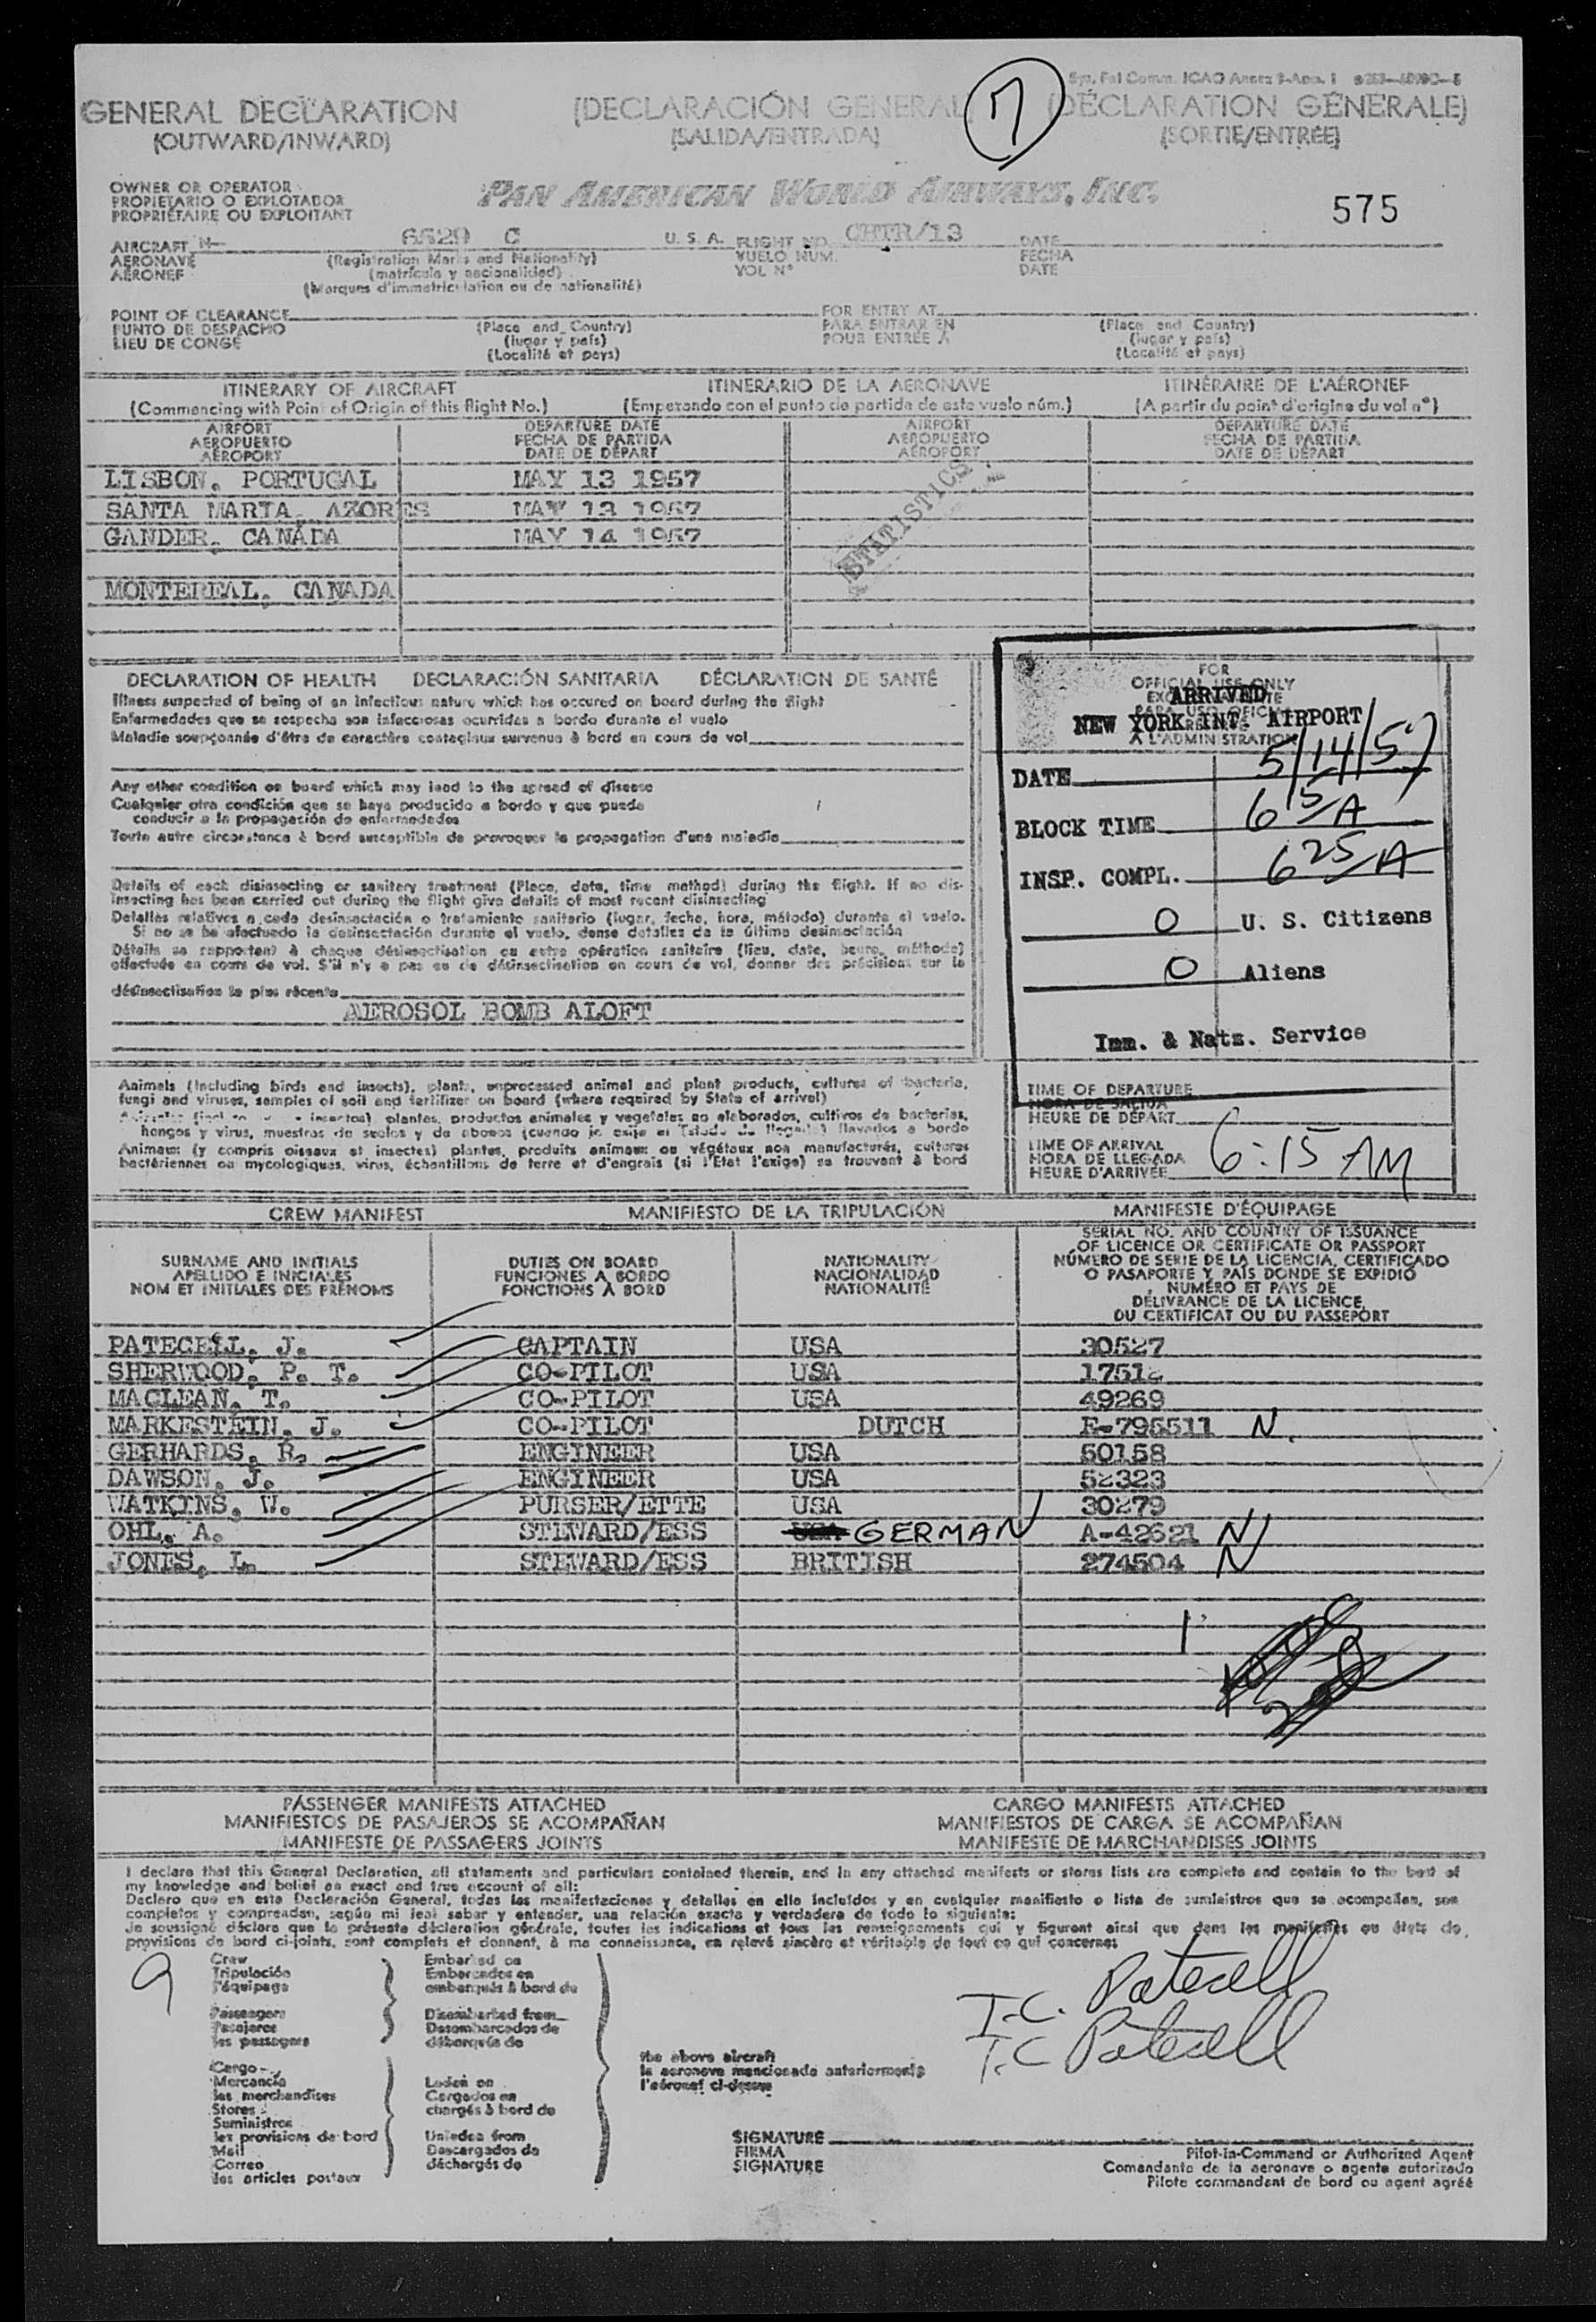 Sp. Fal Comm. ICAO Annex 9-App. 1
GENERAL DECLARATION (DECLARACIÓN GENERAL) 7 (DÉCLARATION GÉNÉRALE)
(OUTWARD/INWARD) (SALIDA/ENTRADA) (SORTIE/ENTRÉE)
OWNER OR OPERATOR
PROPIETARIO O EXPLOTADOR
PROPRIÉTAIRE OU EXPLOITANT
PAN AMERICAN WORLD AIRWAYS, INC.
575
AIRCRAFT N- 6529 C U. S. A. FLIGHT NO. CHTR/13 DATE
AERONAVE (Registration Marks and Nationality) VUELO NUM. FECHA
AÉRONEF (matrícula y nacionalidad) VOL N° DATE
(Marques d'immatriculation ou de nationalité)
POINT OF CLEARANCE FOR ENTRY AT
PUNTO DE DESPACHO (Place and Country) PARA ENTRAR EN (Place and Country)
LIEU DE CONGÉ (lugar y país) POUR ENTRÉE A (lugar y país)
(Localité et pays) (Localité et pays)
ITINERARY OF AIRCRAFT ITINERARIO DE LA AERONAVE ITINÉRAIRE DE L'AÉRONEF
(Commencing with Point of Origin of this flight No.) (Emperando con el punto de partida de este vuelo núm.) (A partir du point d'origine du vol n°)
AIRPORT DEPARTURE DATE AIRPORT DEPARTURE DATE
AEROPUERTO FECHA DE PARTIDA AEROPUERTO FECHA DE PARTIDA
AÉROPORT DATE DE DÉPART AÉROPORT DATE DE DÉPART
LISBON, PORTUGAL MAY 13 1957
SANTA MARIA, AZORES MAY 13 1957
GANDER, CANADA MAY 14 1957
STATISTICS
MONTEREAL, CANADA
DECLARATION OF HEALTH DECLARACIÓN SANITARIA DÉCLARATION DE SANTÉ
Illness suspected of being of an infectious nature which has occured on board during the flight
Enfermedades que se sospecha son infecciosas ocurridas a bordo durante el vuelo
Maladie soupçonnée d'être de caractère contagieux survenue à bord en cours de vol
Any other condition on board which may lead to the spread of disease
Cualquier otra condición que se haya producido a bordo y que pueda
conducir a la propagación de enfermedades
Toute autre circonstance à bord susceptible de provoquer la propagation d'une maladie
Details of each disinsecting or sanitary treatment (Place, date, time method) during the flight. If no dis-
insecting has been carried out during the flight give details of most recent disinsecting
Detalles relativos a cada desinsectación o tratamiento sanitario (lugar, fecha, hora, método) durante el vuelo.
Si no se ha efectuado la desinsectación durante el vuelo, dense detalles de la última desinsectación
Détails se rapportant à chaque désinsectisation ou autre opération sanitaire (lieu, date, heure, méthode)
effectuée en cours de vol. S'il n'y a pas eu de désinsectisation en cours de vol, donner des précisions sur la
désinsectisation la plus récente
AEROSOL BOMB ALOFT
FOR
OFFICIAL USE ONLY
ARRIVED
NEW YORK INT. AIRPORT
A L'ADMINISTRATION
DATE 5/14/57
BLOCK TIME 6 15/A
INSP. COMPL. 6 25/A
0 U. S. Citizens
0 Aliens
Imm. & Natz. Service
Animals (including birds and insects), plants, unprocessed animal and plant products, cultures of bacteria,
fungi and viruses, samples of soil and fertilizer on board (where required by State of arrival)
plantas, productos animales y vegetales no elaborados, cultivos de bacterias,
hongos y virus, muestras de suelos y de abonos (cuando lo exija el Estado de llegada) llevados a bordo
Animaux (y compris oiseaux et insectes) plantes, produits animaux ou végétaux non manufacturés, cultures
bactériennes ou mycologiques, virus, échantillons de terre et d'engrais (si l'Etat l'exige) se trouvant à bord
TIME OF DEPARTURE
HORA DE SALIDA
HEURE DE DÉPART
TIME OF ARRIVAL
HORA DE LLEGADA
HEURE D'ARRIVÉE 6:15 AM
CREW MANIFEST MANIFIESTO DE LA TRIPULACIÓN MANIFESTE D'ÉQUIPAGE
SURNAME AND INITIALS
APELLIDO E INICIALES
NOM ET INITIALES DES PRÉNOMS
DUTIES ON BOARD
FUNCIONES A BORDO
FONCTIONS À BORD
NATIONALITY
NACIONALIDAD
NATIONALITÉ
SERIAL NO. AND COUNTRY OF ISSUANCE
OF LICENCE OR CERTIFICATE OR PASSPORT
NÚMERO DE SERIE DE LA LICENCIA, CERTIFICADO
O PASAPORTE Y PAÍS DONDE SE EXPIDIÓ
NUMÉRO ET PAYS DE
DÉLIVRANCE DE LA LICENCE,
DU CERTIFICAT OU DU PASSEPORT
PATECELL, J. CAPTAIN USA 30527
SHERWOOD, P. T. CO-PILOT USA 1751
MACLEAN, T. CO-PILOT USA 49269
MARKESTEIN, J. CO-PILOT DUTCH E-795511 N.
GERHARDS, R. ENGINEER USA 50158
DAWSON, J. ENGINEER USA 52323
WATKINS, W. PURSER/ETTE USA 30279
OHL, A. STEWARD/ESS GERMAN A-42621 N
JONES, L. STEWARD/ESS BRITISH 274504 N
1
PASSENGER MANIFESTS ATTACHED CARGO MANIFESTS ATTACHED
MANIFIESTOS DE PASAJEROS SE ACOMPAÑAN MANIFIESTOS DE CARGA SE ACOMPAÑAN
MANIFESTE DE PASSAGERS JOINTS MANIFESTE DE MARCHANDISES JOINTS
I declare that this General Declaration, all statements and particulars contained therein, and in any attached manifests or stores lists are complete and contain to the best of
my knowledge and belief an exact and true account of all:
Declaro que en esta Declaración General, todas las manifestaciones y detalles en ella incluídos y en cualquier manifiesto o lista de suministros que se acompañan, son
completos y comprenden, según mi leal saber y entender, una relación exacta y verdadera de todo lo siguiente:
Je soussigné déclare que la présente déclaration générale, toutes les indications et tous les renseignements qui y figurent ainsi que dans les manifestes ou états de
provisions de bord ci-joints, sont complets et donnent, à ma connaissance, un relevé sincère et véritable de tout ce qui concerne:
9
Crew Embarked on
Tripulación Embarcados en
l'équipage embarqués à bord de
Passengers Disembarked from
Pasajeros Desembarcados de
les passagers débarqués de
Cargo
Mercancía Laden on
les marchandises Cargados en
Stores chargés à bord de
Suministros
les provisions de bord Unladen from
Mail Descargados de
Correo déchargés de
les articles postaux
the above aircraft
la aeronave mencionada anteriormente
l'aéronef ci-dessus
T.C. Patecell
T.C Patecell
SIGNATURE
FIRMA
SIGNATURE
Pilot-in-Command or Authorized Agent
Comandante de la aeronave o agente autorizado
Pilote commandant de bord ou agent agréé